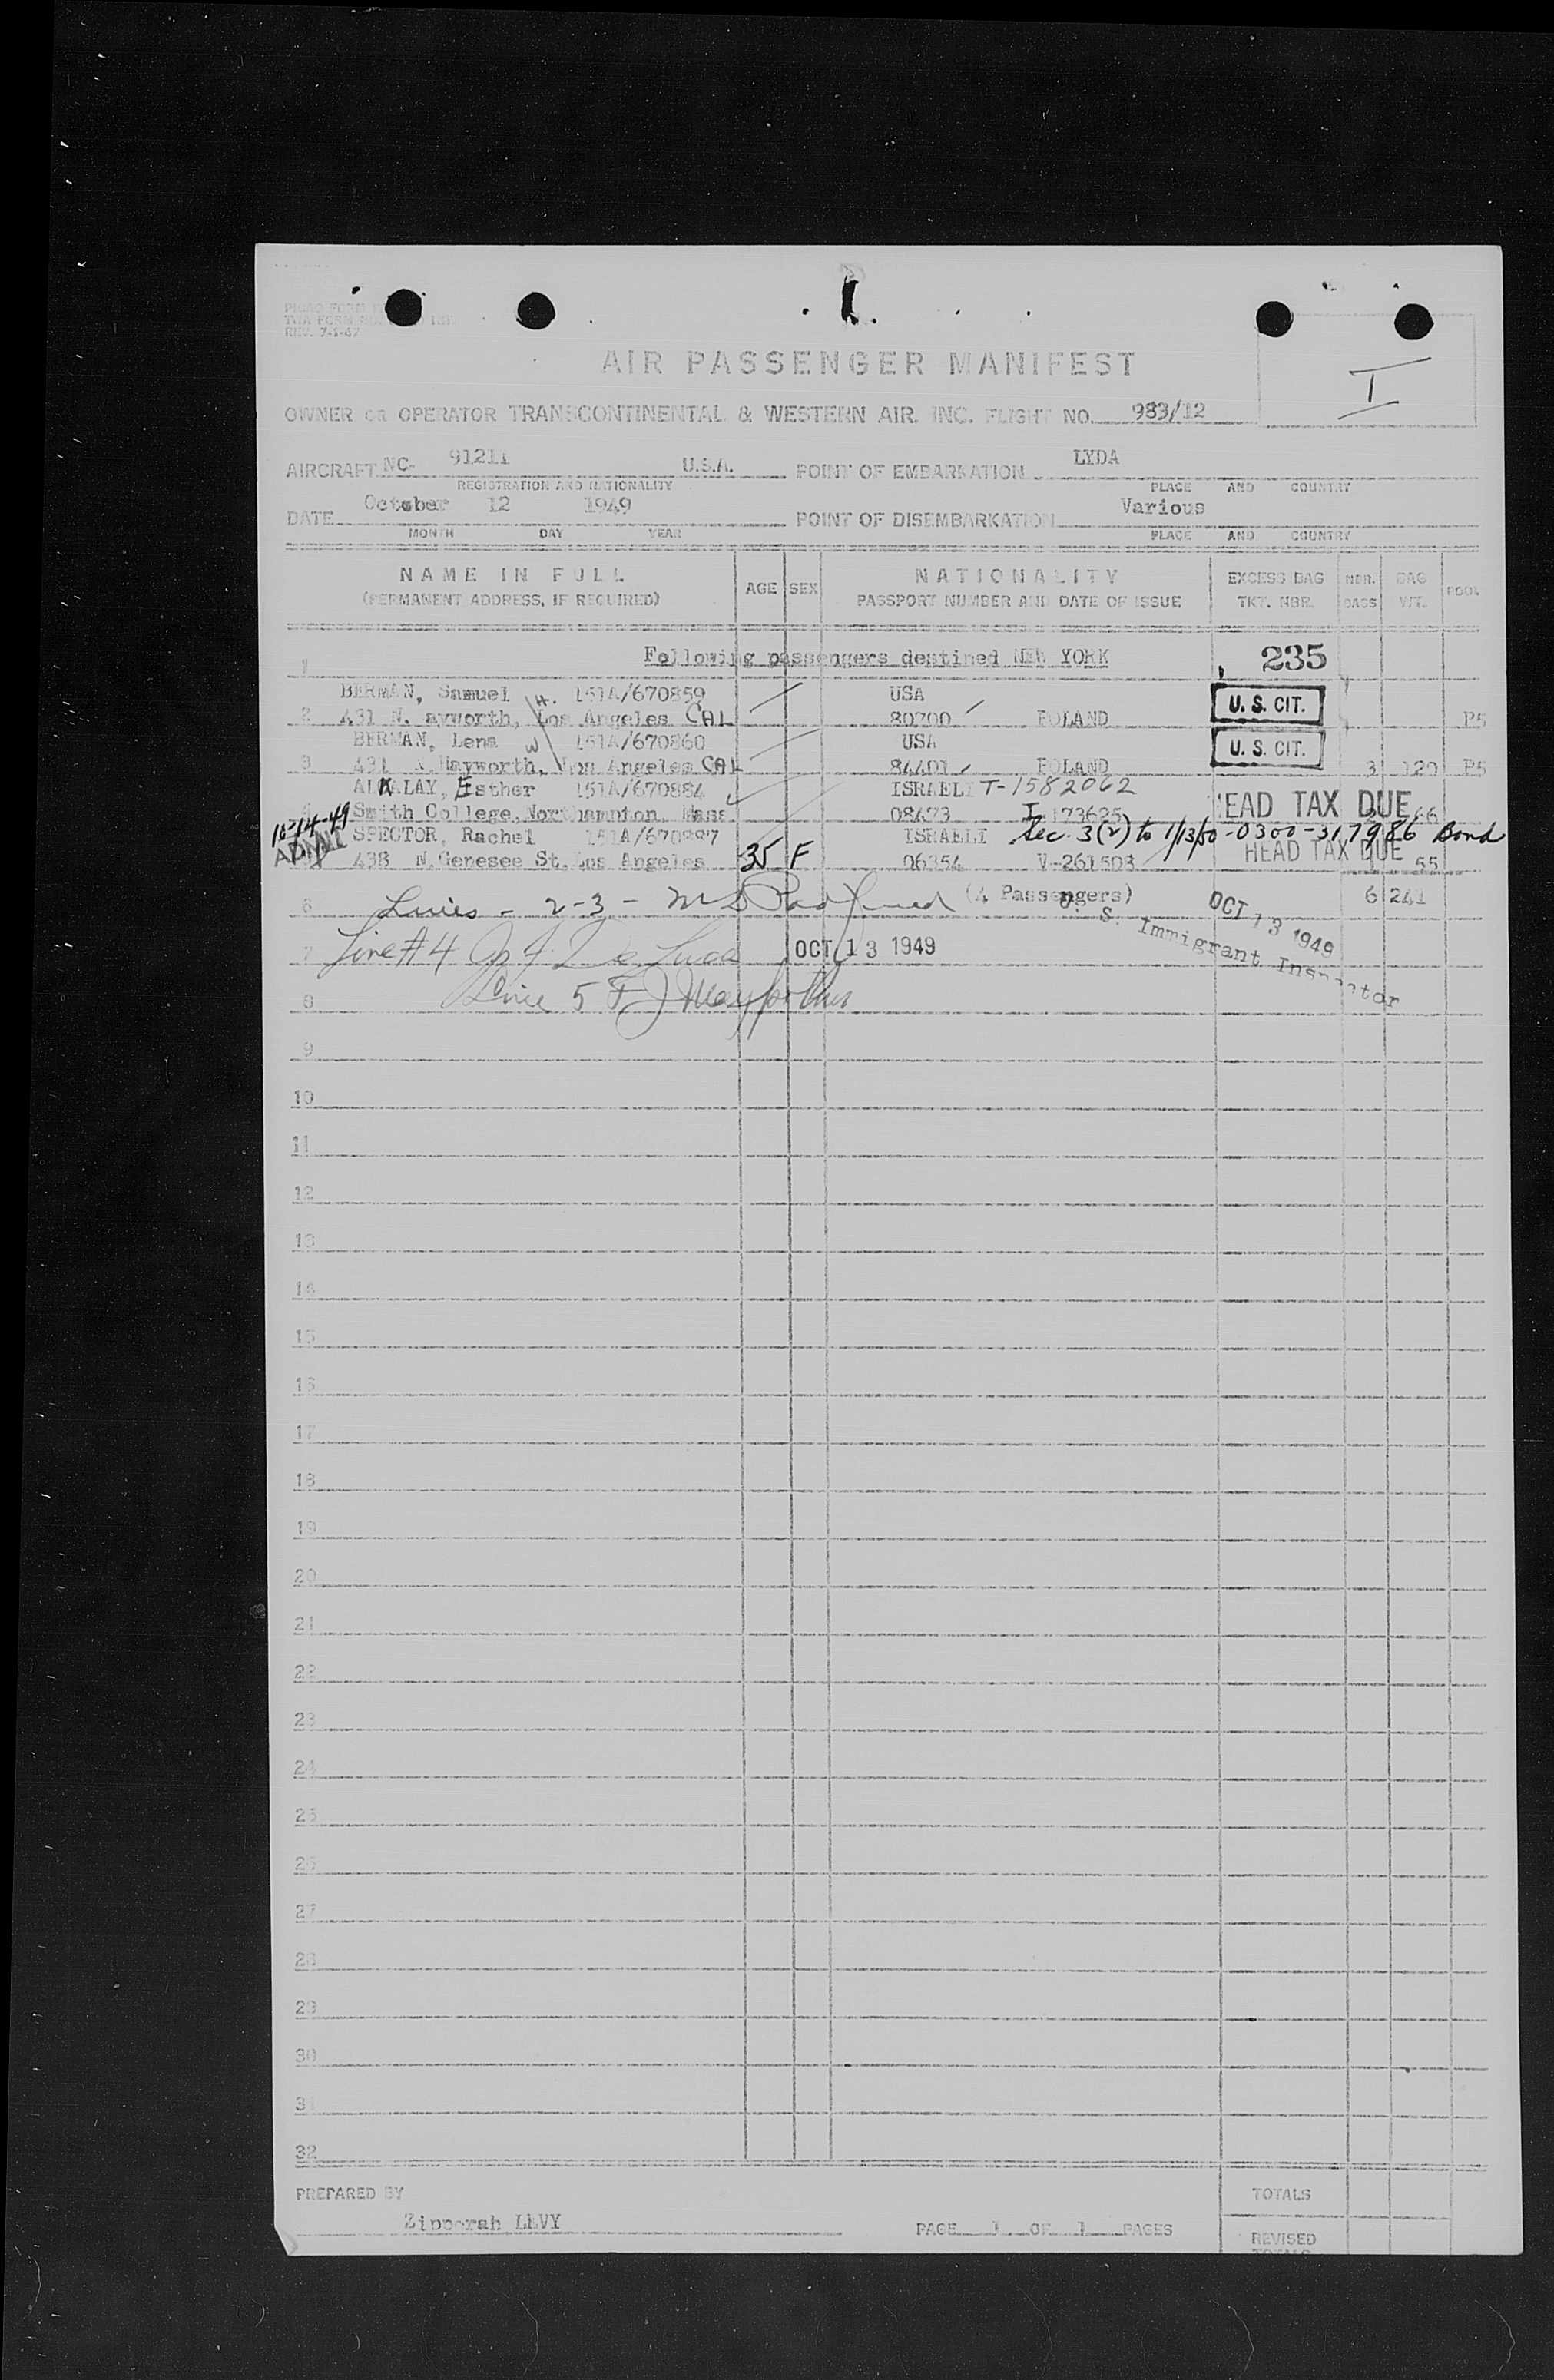 REV. 7-1-47
AIR PASSENGER MANIFEST
I
OWNER OR OPERATOR TRANSCONTINENTAL & WESTERN AIR. INC. FLIGHT NO. 983/12
AIRCRAFT NC- 91211 U.S.A. POINT OF EMBARKATION LYDA
REGISTRATION AND NATIONALITY PLACE AND COUNTRY
DATE October 12 1949 POINT OF DISEMBARKATION Various
MONTH DAY YEAR PLACE AND COUNTRY
NAME IN FULL AGE SEX NATIONALITY EXCESS BAG NBR. BAG POOL
(PERMANENT ADDRESS, IF REQUIRED) PASSPORT NUMBER AND DATE OF ISSUE TKT. NBR. BAGS WT.
1 Following passengers destined NEW YORK 235
BERMAN, Samuel H. 151A/670859 USA U. S. CIT.
2 431 N. ayworth, Los Angeles CAL 80700 POLAND P5
BERMAN, Lena W 151A/670860 USA U. S. CIT.
3 431 N. Hayworth, Los Angeles CAL 84401 POLAND 3 120 P5
ALKALAY, Esther 151A/670884 ISRAELI T-1582062
4 Smith College, Northampton, Mass 08473 I 173625 HEAD TAX DUE 66
10-14-49 SPECTOR, Rachel 151A/670887 ISRAELI Sec. 3(2) to 1/13/50-0300-317986 Bond
438 N. Genesee St. Los Angeles 35 F 06354 V-261503 HEAD TAX DUE 55
6 Lines - 2-3 - (4 Passengers) OCT 13 1949 6 241
U. S. Immigrant Inspector
7 Line #4 OCT 13 1949
8 Line 5
9
10
11
12
13
14
15
16
17
18
19
20
21
22
23
24
25
26
27
28
29
30
31
32
PREPARED BY TOTALS
Zipporah LEVY PAGE 1 OF 1 PAGES REVISED
TOTALS